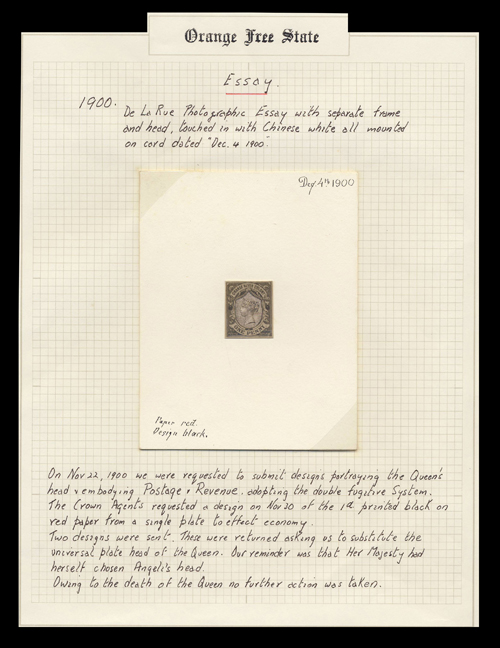 Orange Free State
Essay.
1900. De La Rue Photographic Essay with separate frame
and head, touched in with Chinese white all mounted
on card dated "Dec. 4 1900".
Decr 4th 1900
Paper red.
Design black.
On Nov 22, 1900 we were requested to submit designs portraying the Queen's
head & embodying Postage & Revenue. adopting the double fugitive System.
The Crown Agents requested a design on Nov 20 of the 1d printed black on
red paper from a single plate to effect economy.
Two designs were sent. These were returned asking us to substitute the
universal plate head of the Queen. Our reminder was that Her Majesty had
herself chosen Angeli's head.
Owing to the death of the Queen no further action was taken.